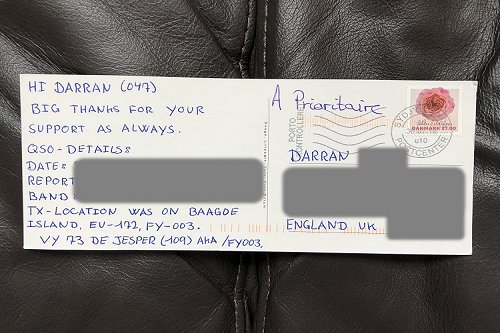 HI DARRAN (047)
BIG THANKS FOR YOUR
SUPPORT AS ALWAYS.
QSO-DETAILS:
DATE:
REPORT
BAND
TX-LOCATION WAS ON BAAGOE
ISLAND, EU-172, FY-003.
VY 73 DE JESPER (-109) AHA /FY003.
A Prioritaire
PORTO
DANMARK 27.00
POSTCENTER
U10
DARRAN
ENGLAND UK